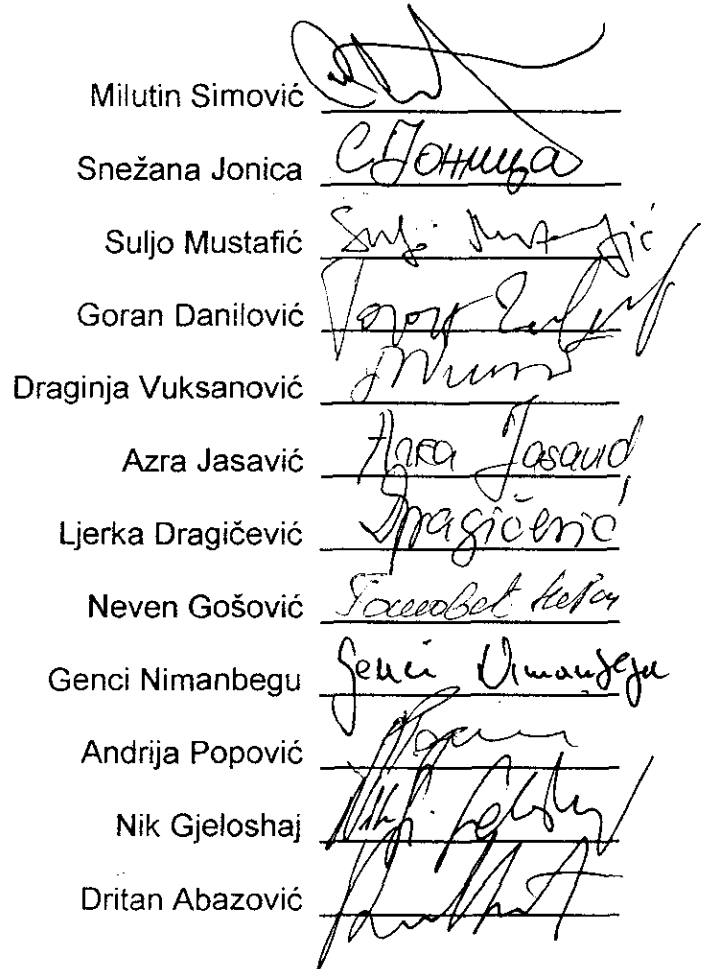 Milutin Simović
Snežana Jonica С Јоница
Suljo Mustafić Suljo Mustafić
Goran Danilović
Draginja Vuksanović
Azra Jasavić Azra Jasavić
Ljerka Dragičević Dragičević
Neven Gošović
Genci Nimanbegu Genci Nimanbegu
Andrija Popović
Nik Gjeloshaj
Dritan Abazović